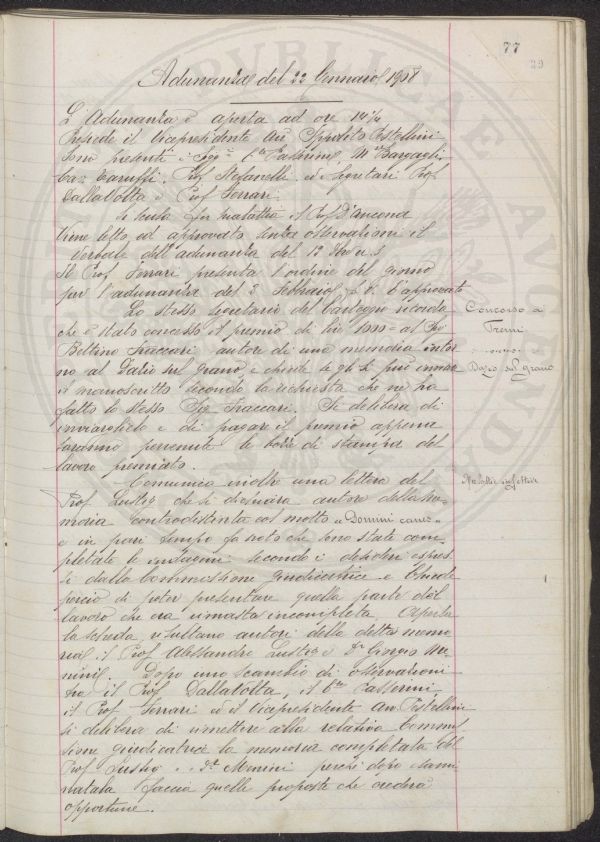 77
29
Adunanza del 22 Gennaio 1908
L'Adunanza è aperta ad ore 14¼
Presiede il Vicepresidente Avv. Ippolito Pestellini
Sono presenti i Sigri Cte Passerini, Mse Bargagli
Cav. Caruffi, Prof. Stefanelli ed i Segretari Prof
Dalla Volta e Prof Ferrari.
Si scusa per malattia il Prof D'Ancona
Viene letto ed approvato senza osservazioni il
verbale dell'adunanza del 12
Il Prof Ferrari presenta l'ordine del giorno
per l'adunanza del 2 Febbraio ed è approvato
Lo stesso segretario del carteggio ricorda
che è stato concesso il premio di lire 1000 al
Bettino Fraccari autore di una memoria intor
no al Dazio sul grano e chiede se gli si può inviare
il manoscritto secondo la richiesta che ne ha
fatto lo stesso Sig Fraccari. Si delibera di
inviarglielo e di pagare il premio appena
saranno pervenute le bozze di stampa del
lavoro premiato.
Concorso a
Premi
Dazio sul grano
Comunica inoltre una lettera del
Prof Lustig che si dichiara autore della me
moria controdistinta col motto "Domini canes"
e in pari tempo fa noto che sono state com
pletate le indagini secondo i desideri espres
si dalla Commissione giudicatrice e chiede
perciò di poter presentare quella parte del
lavoro che era rimasta incompleta. Aperta
la scheda, risultano autori della detta memo
ria il Prof Alessandro Lustig e Dr Giorgio Mo
rini. Dopo uno scambio di osservazioni
tra il Prof Dalla Volta, il Cte Passerini,
il Prof Ferrari ed il Vicepresidente Avv. Pestellini
si delibera di rimettere alla relativa Commis
sione giudicatrice la memoria completata del
Prof Lustig e Dr Morini perché dopo esami
natala faccia quelle proposte che crederà
opportune.
Malattie infettive